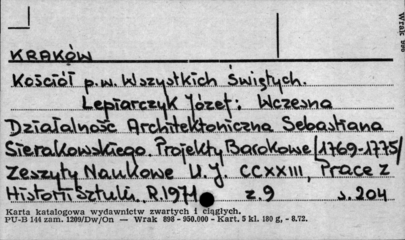 KRAKÓW
Kościół p.w. Wszystkich Świętych.
Lepiarczyk Józef: Wczesna
Działalność Architektoniczna Sebastiana
Sierakowskiego. Projekty Barokowe /1769-1775/
Zeszyty Naukowe U.J. CCXXIII, Prace z
Historii Sztuki. R.1971 z.9 s.204
Karta katalogowa wydawnictw zwartych i ciągłych.
PU-B 144 zam. 1209/Dw/On — Wrak 898 - 950.000 - Kart. 5 kl. 180 g, - 8.72.